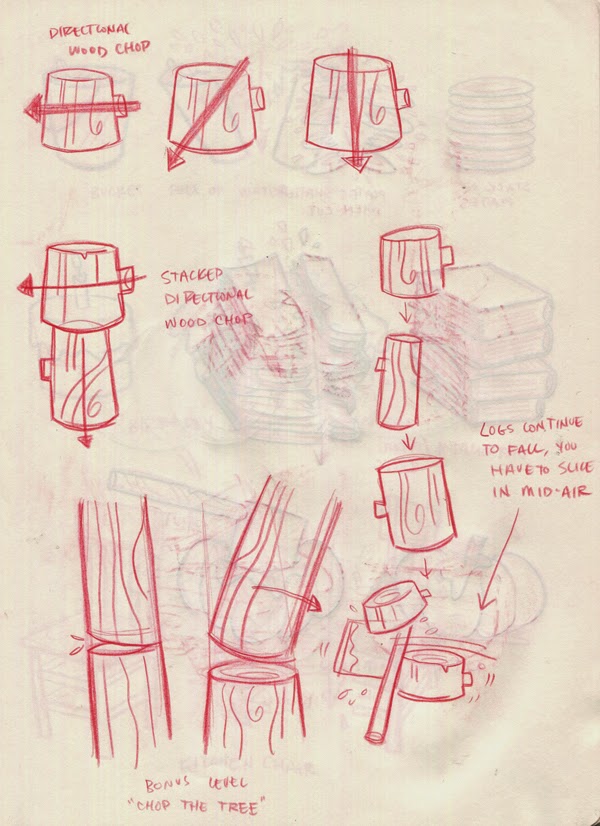 DIRECTIONAL
WOOD CHOP
STACKED
DIRECTIONAL
WOOD CHOP
LOGS CONTINUE
TO FALL, YOU
HAVE TO SLICE
IN MID-AIR
BONUS LEVEL
"CHOP THE TREE"